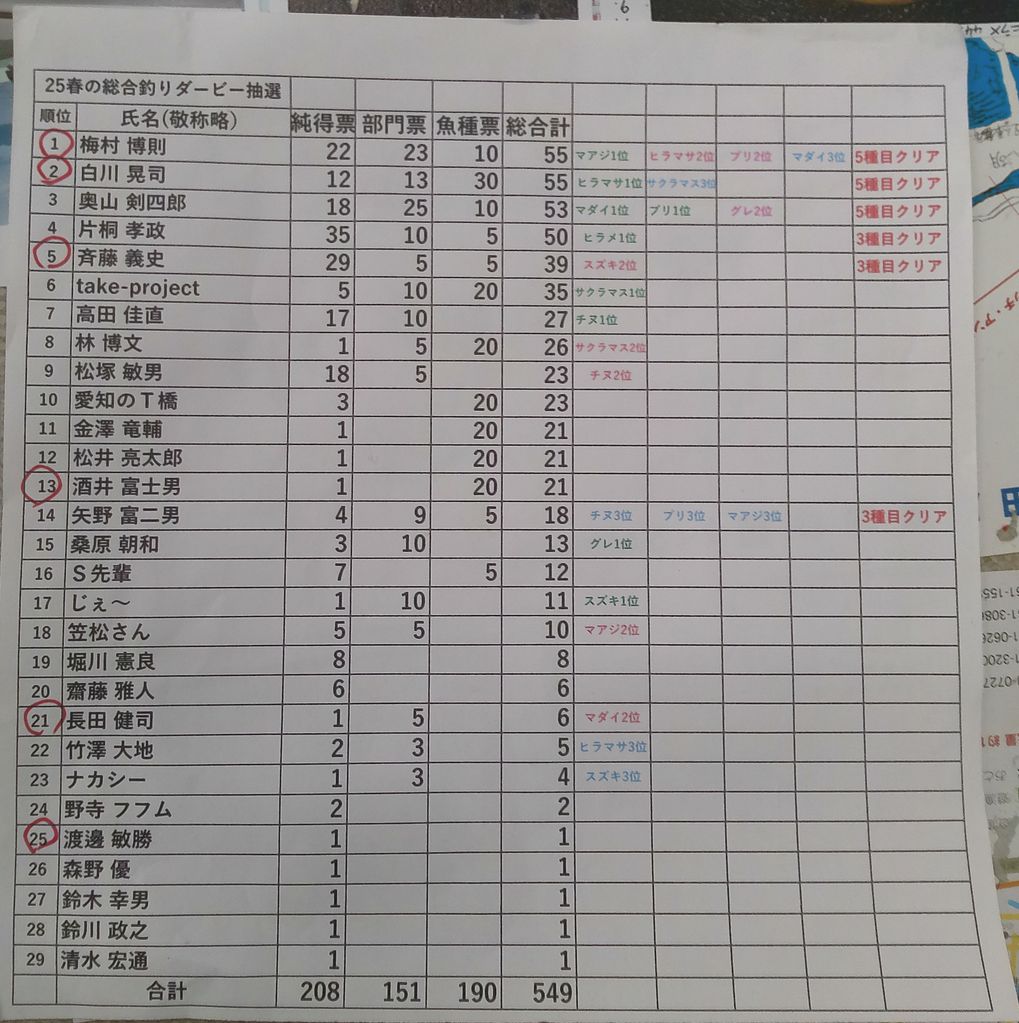 25春の総合釣りダービー抽選
順位 氏名(敬称略) 純得票 部門票 魚種票 総合計
1 梅村 博則 22 23 10 55 マアジ1位 ヒラマサ2位 ブリ2位 マダイ3位 5種目クリア
2 白川 晃司 12 13 30 55 ヒラマサ1位 サクラマス3位 5種目クリア
3 奥山 剣四郎 18 25 10 53 マダイ1位 ブリ1位 グレ2位 5種目クリア
4 片桐 孝政 35 10 5 50 ヒラメ1位 3種目クリア
5 斉藤 義史 29 5 5 39 スズキ2位 3種目クリア
6 take-project 5 10 20 35 サクラマス1位
7 高田 佳直 17 10 27 チヌ1位
8 林 博文 1 5 20 26 サクラマス2位
9 松塚 敏男 18 5 23 チヌ2位
10 愛知のT橋 3 20 23
11 金澤 竜輔 1 20 21
12 松井 亮太郎 1 20 21
13 酒井 富士男 1 20 21
14 矢野 富二男 4 9 5 18 チヌ3位 ブリ3位 マアジ3位 3種目クリア
15 桑原 朝和 3 10 13 グレ1位
16 S先輩 7 5 12
17 じぇ〜 1 10 11 スズキ1位
18 笠松さん 5 5 10 マアジ2位
19 堀川 憲良 8 8
20 齋藤 雅人 6 6
21 長田 健司 1 5 6 マダイ2位
22 竹澤 大地 2 3 5 ヒラマサ3位
23 ナカシー 1 3 4 スズキ3位
24 野寺 フフム 2 2
25 渡邉 敏勝 1 1
26 森野 優 1 1
27 鈴木 幸男 1 1
28 鈴川 政之 1 1
29 清水 宏通 1 1
合計 208 151 190 549